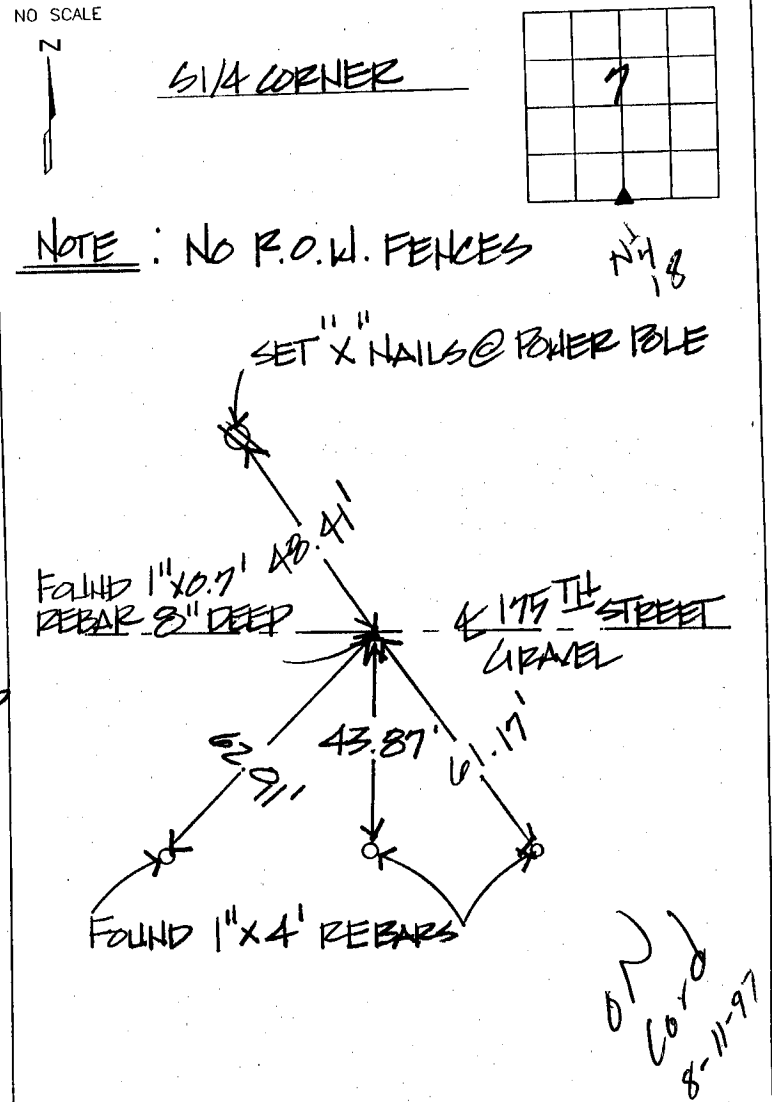 NO SCALE
N
S1/4 CORNER
7
N¼ 18
NOTE : NO R.O.W. FENCES
SET "X" NAILS @ POWER POLE
48.41'
FOUND 1"X0.7'
REBAR 8" DEEP
℄ 175TH STREET
GRAVEL
62.91'
43.87'
61.17'
FOUND 1"X4' REBARS
8-11-97